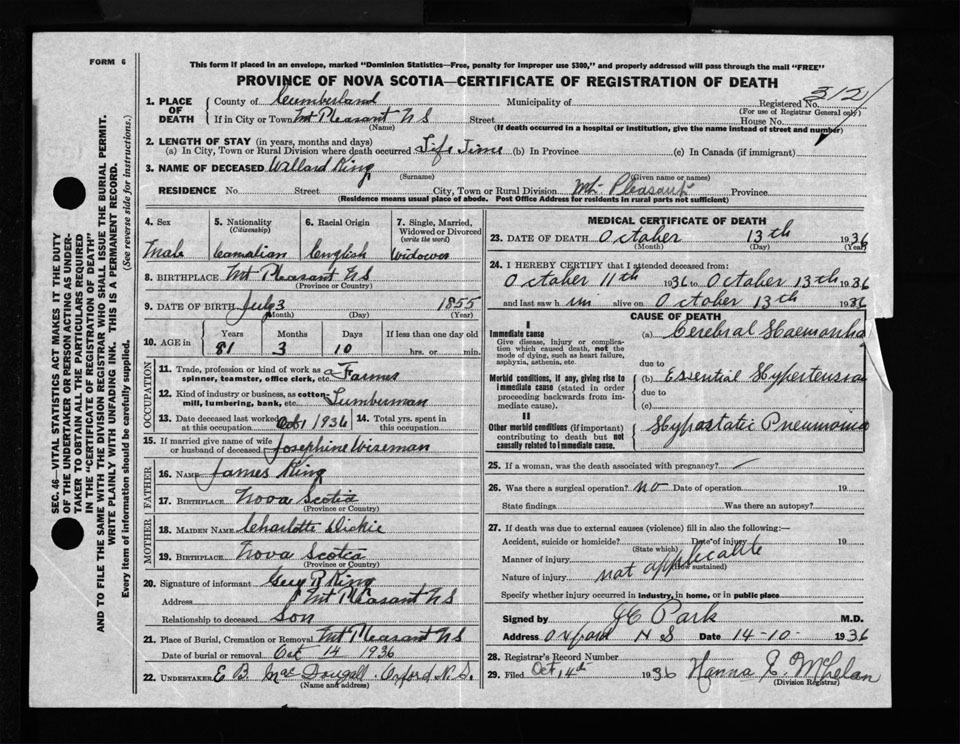 FORM 6
This form if placed in an envelope, marked "Dominion Statistics—Free, penalty for improper use $300," and properly addressed will pass through the mail "FREE"
PROVINCE OF NOVA SCOTIA—CERTIFICATE OF REGISTRATION OF DEATH
1. PLACE OF DEATH
County of Cumberland Municipality of Registered No. 312
(For use of Registrar General only)
If in City or Town Mt Pleasant N S Street House No.
(Name) (If death occurred in a hospital or institution, give the name instead of street and number)
2. LENGTH OF STAY (in years, months and days)
(a) In City, Town or Rural Division where death occurred Life Time (b) In Province (c) In Canada (if immigrant)
3. NAME OF DECEASED Willard King
(Surname) (Given name or names)
RESIDENCE No. Street City, Town or Rural Division Mt. Pleasant Province
(Residence means usual place of abode. Post Office Address for residents in rural parts not sufficient)
4. Sex
Male
5. Nationality
(Citizenship)
Canadian
6. Racial Origin
English
7. Single, Married,
Widowed or Divorced
(write the word)
Widower
8. BIRTHPLACE Mt Pleasant N S
(Province or Country)
9. DATE OF BIRTH July 3 1855
(Month) (Day) (Year)
10. AGE in
Years Months Days If less than one day old
81 3 10 hrs. or min.
OCCUPATION
11. Trade, profession or kind of work as a
spinner, teamster, office clerk, etc. Farmer
12. Kind of industry or business, as cotton-
mill, lumbering, bank, etc. Lumberman
13. Date deceased last worked
at this occupation Oct 1 1936
14. Total yrs. spent in
this occupation
15. If married give name of wife
or husband of deceased Josephine Wiseman
FATHER
16. NAME James King
17. BIRTHPLACE Nova Scotia
(Province or Country)
MOTHER
18. MAIDEN NAME Charlotte Dickie
19. BIRTHPLACE Nova Scotia
(Province or Country)
20. Signature of informant Guy R King
Address Mt Pleasant N S
Relationship to deceased Son
21. Place of Burial, Cremation or Removal Mt Pleasant N S
Date of burial or removal Oct 14 1936
22. UNDERTAKER E B. MacDougall. Oxford N.S.
(Name and address)
MEDICAL CERTIFICATE OF DEATH
23. DATE OF DEATH October 13th 1936
(Month) (Day) (Year)
24. I HEREBY CERTIFY that I attended deceased from:
October 11th 1936 to October 13th 1936
and last saw h im alive on October 13th 1936
CAUSE OF DEATH
I
Immediate cause
Give disease, injury or complica-
tion which caused death, not the
mode of dying, such as heart failure,
asphyxia, asthenia, etc.
(a) Cerebral Haemorrha
due to
Morbid conditions, if any, giving rise to
immediate cause (stated in order
proceeding backwards from im-
mediate cause).
(b) Essential Hypertension
due to
(c)
II
Other morbid conditions (if important)
contributing to death but not
causally related to immediate cause.
Hypostatic Pneumonia
25. If a woman, was the death associated with pregnancy?
26. Was there a surgical operation? no Date of operation 19
State findings Was there an autopsy?
27. If death was due to external causes (violence) fill in also the following:—
Accident, suicide or homicide? Date of injury 19
(State which)
Manner of injury
(How sustained)
Nature of injury not applicable
Specify whether injury occurred in industry, in home, or in public place
Signed by J C Park M.D.
Address Oxford N S Date 14-10- 1936
28. Registrar's Record Number
29. Filed Oct 14th 1936
(Division Registrar)
SEC. 46—VITAL STATISTICS ACT MAKES IT THE DUTY
OF THE UNDERTAKER OR PERSON ACTING AS UNDER-
TAKER TO OBTAIN ALL THE PARTICULARS REQUIRED
IN THE "CERTIFICATE OF REGISTRATION OF DEATH"
AND TO FILE THE SAME WITH THE DIVISION REGISTRAR WHO SHALL ISSUE THE BURIAL PERMIT.
WRITE PLAINLY WITH UNFADING INK. THIS IS A PERMANENT RECORD.
Every item of information should be carefully supplied. (See reverse side for instructions.)